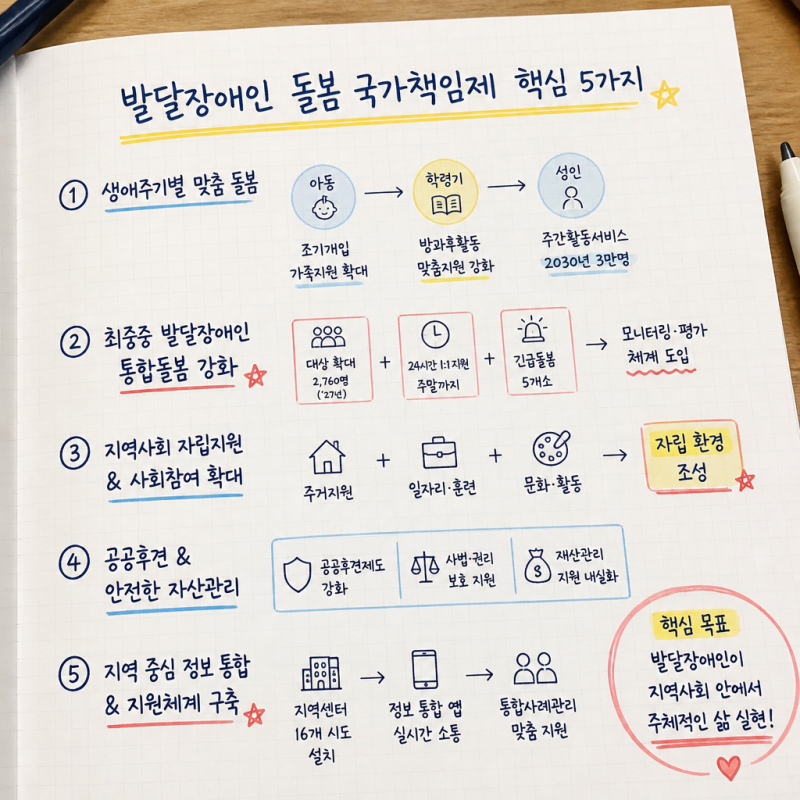 발달장애인 돌봄 국가책임제 핵심 5가지
① 생애주기별 맞춤 돌봄
아동
조기개입
가족지원 확대
학령기
방과후활동
맞춤지원 강화
성인
주간활동서비스
2030년 3만명
② 최중증 발달장애인
통합돌봄 강화
대상 확대
2,760명
('27년)
+
24시간 1:1 지원
주말까지
+
긴급돌봄
5개소
모니터링·평가
체계 도입
③ 지역사회 자립지원
& 사회참여 확대
주거지원
+
일자리·훈련
+
문화·활동
자립 환경
조성
④ 공공후견 &
안전한 자산관리
공공후견제도
강화
사법·권리
보호 지원
$
재산관리
지원 내실화
⑤ 지역 중심 정보 통합
& 지원체계 구축
지역센터
16개 시도
설치
정보 통합 앱
실시간 소통
통합사례관리
맞춤 지원
핵심 목표
발달장애인이
지역사회 안에서
주체적인 삶 실현!